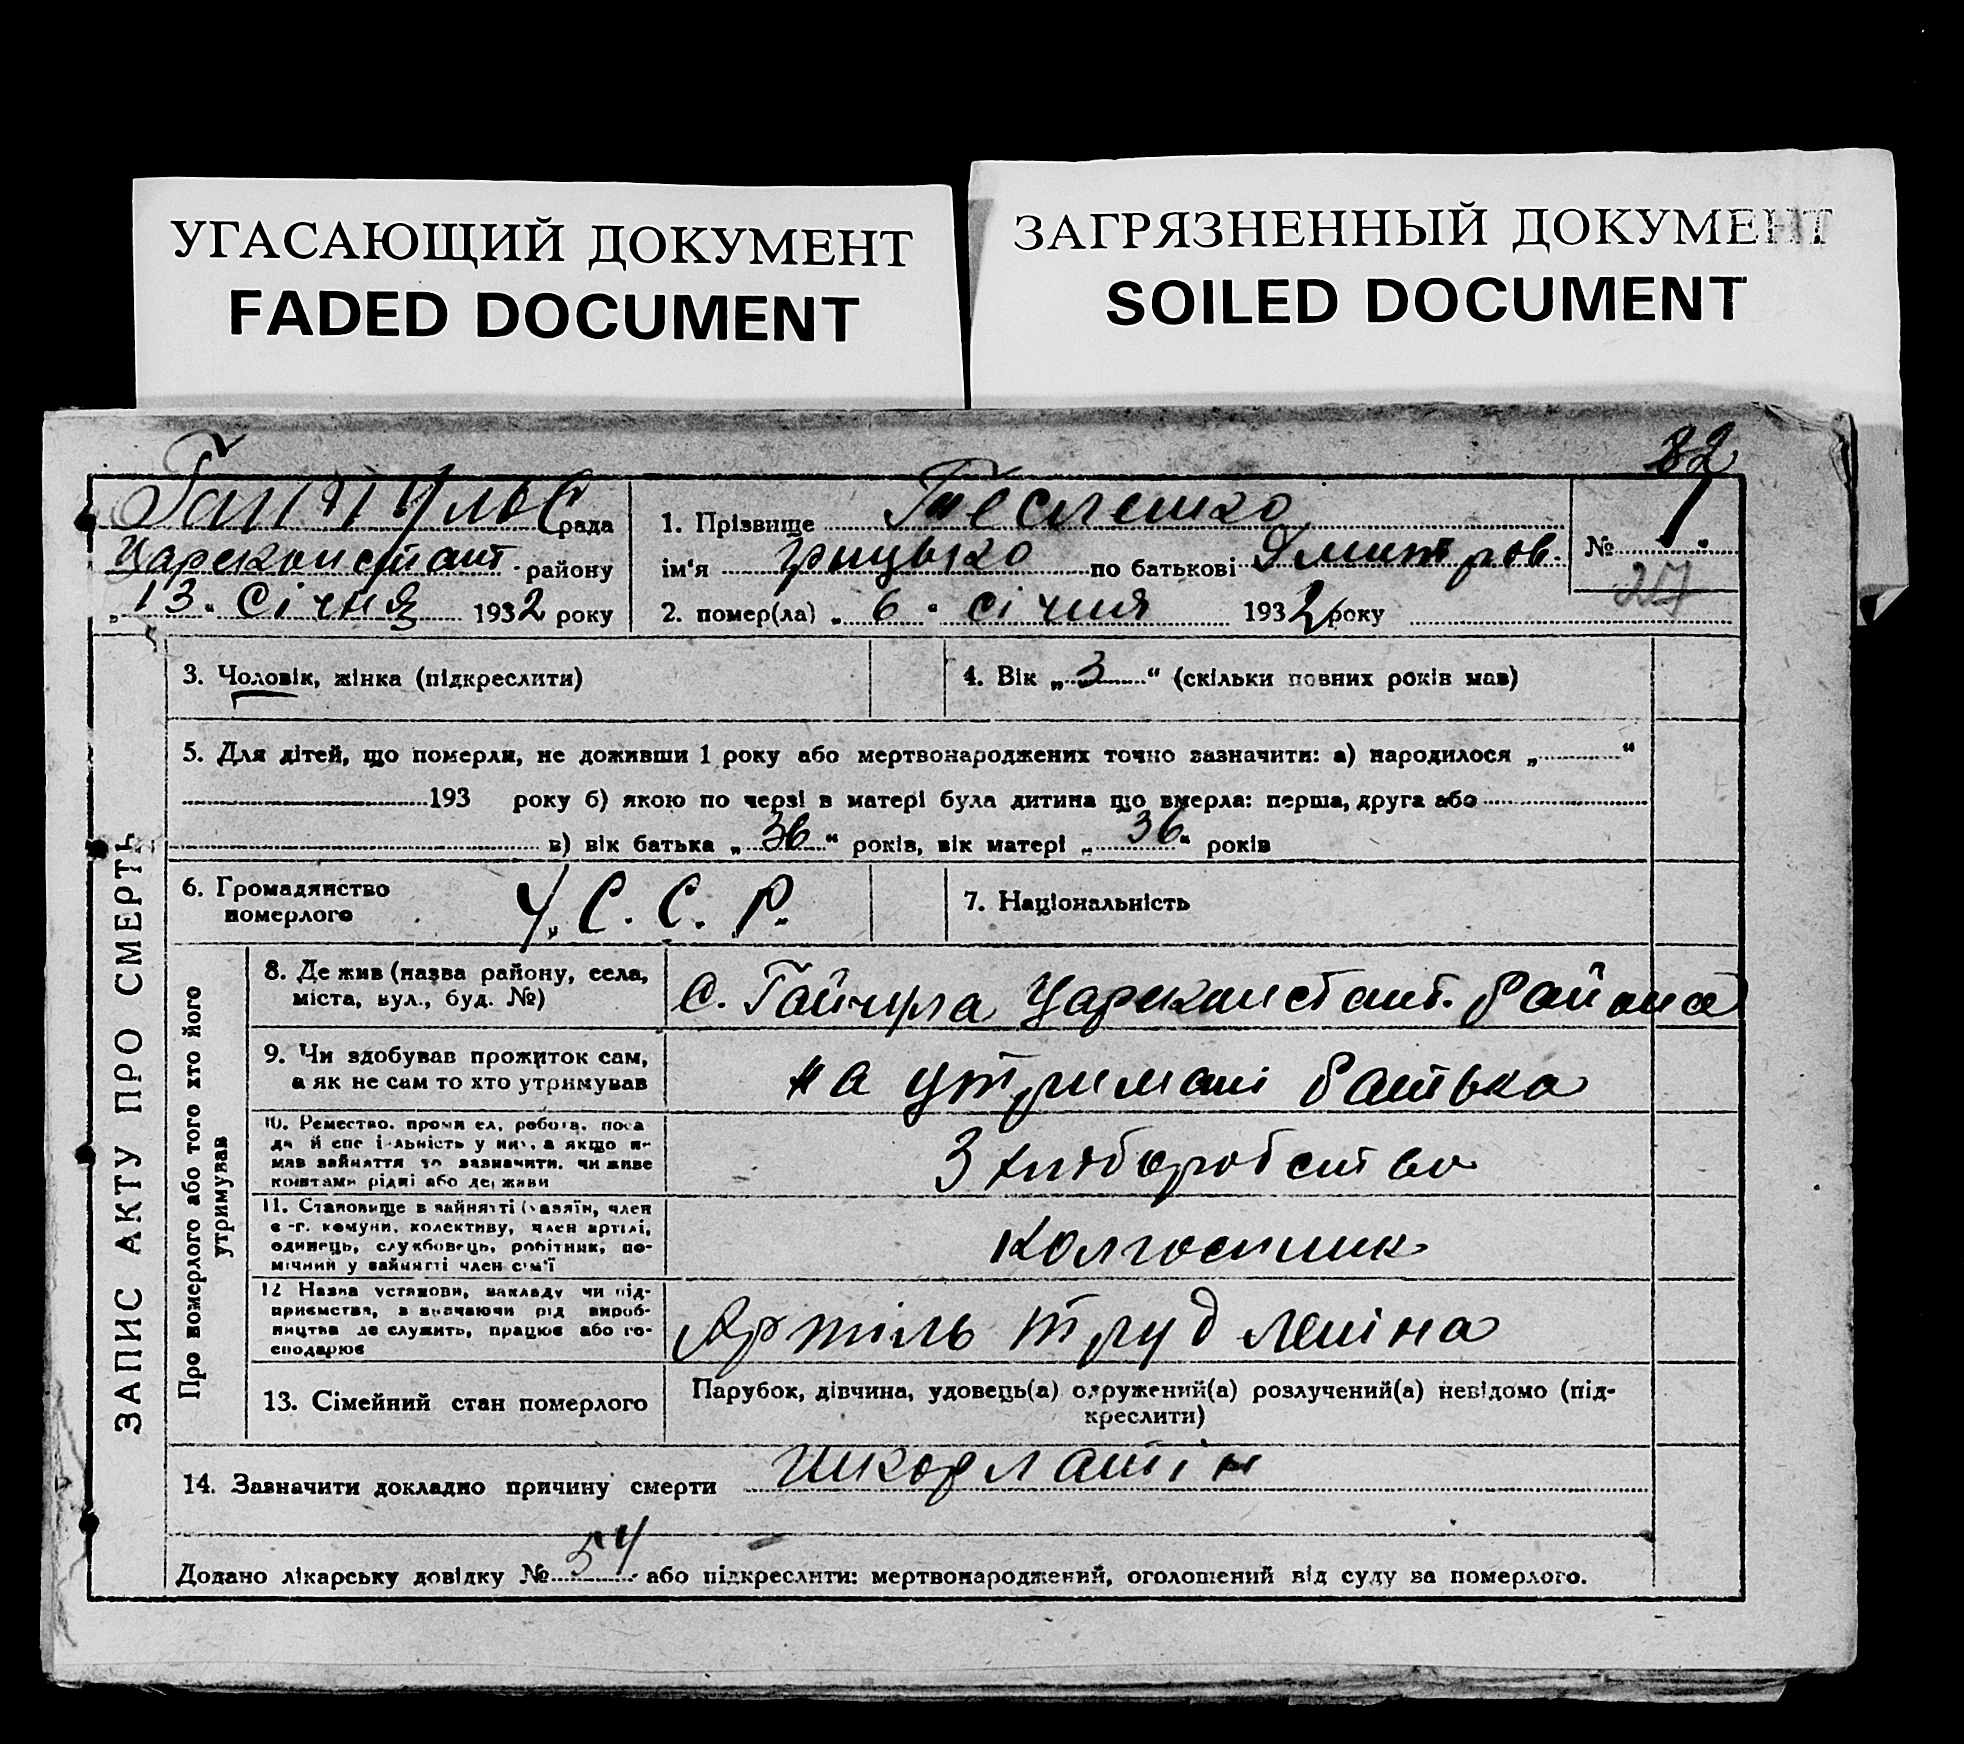 УГАСАЮЩИЙ ДОКУМЕНТ
FADED DOCUMENT
ЗАГРЯЗНЕННЫЙ ДОКУМЕНТ
SOILED DOCUMENT
82
Гайчульс рада
Цареконстант. району
„13. Січня 1932 року
1. Прізвище Тесленко
ім'я Грицько по батькові Дмитров.
2. помер(ла) „6" січня 1932 року
№ 1.
27
ЗАПИС АКТУ ПРО СМЕРТЬ
3. Чоловік, жінка (підкреслити)
4. Вік „3" (скільки повних років мав)
5. Для дітей, що померли, не доживши 1 року або мертвонароджених точно зазначити: а) народилося „ "
193 року б) якою по черзі в матері була дитина що вмерла: перша, друга або
в) вік батька „36" років, вік матері „36" років
6. Громадянство
померлого
У. С. С. Р.
7. Національність
Про померлого або того хто його
утримував
8. Де жив (назва району, села,
міста, вул., буд. №)
С. Гайчула Цареконстант. району
9. Чи здобував прожиток сам,
а як не сам то хто утримував
на утримані батька
10. Ремество, промисел, робота, поса
да й спеціальність у них, а якщо не
мав зайняття то зазначити, чи живе
коштами рідні або держави
З хліборобства
11. Становище в зайнятті (хазяїн, член
с.-г. комуни, колективу, член артілі,
одинець, службовець, робітник, по-
мічний у зайнятті член сім'ї
колгоспник
12 Назва установи, закладу чи під-
приємства, зазначаючи рід вироб-
ництва де служить, працює або го-
сподарює
Артіль труд леніна
13. Сімейний стан померлого
Парубок, дівчина, удовець(а) одружений(а) розлучений(а) невідомо (під-
креслити)
14. Зазначити докладно причину смерти шкорлатін
Додано лікарську довідку № 54 або підкреслити: мертвонароджений, оголошений від суду за померлого.